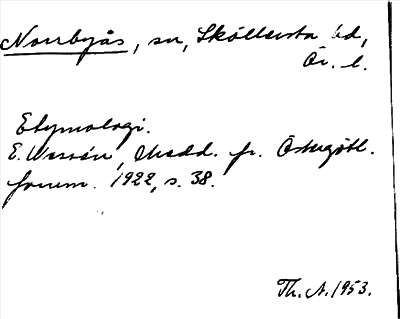 Norrbyås, sn, Sköllersta hd,
Ör. l.
Etymologi.
E. Wessén, Medd. fr. Östergötl.
fornm. 1922, s. 38.
Th. A. 1953.